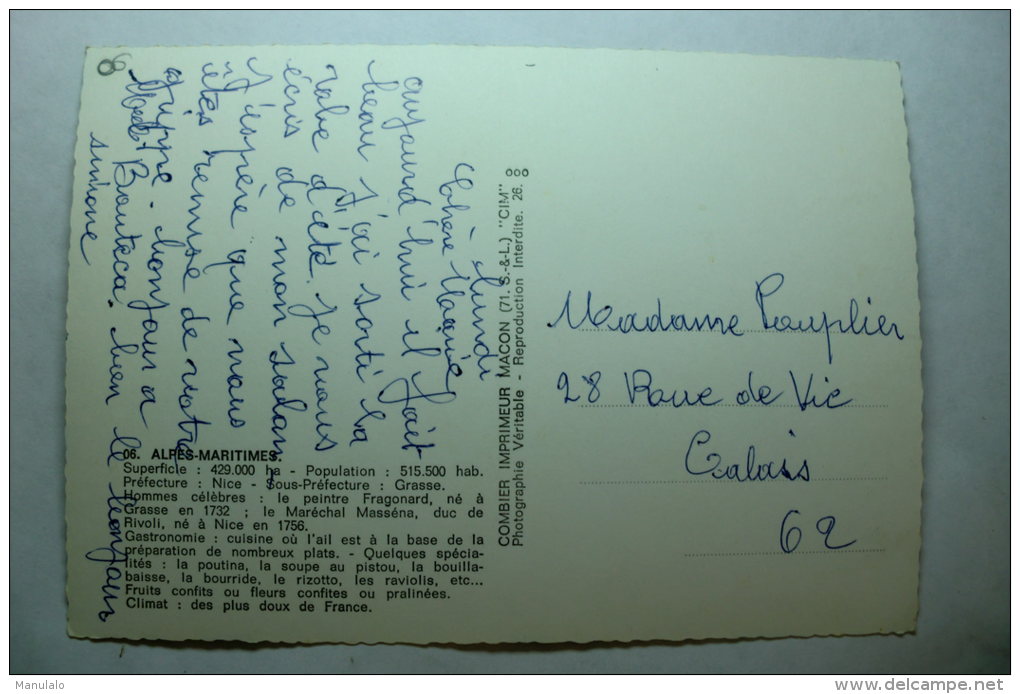 Lundi
Chère Marie
aujourd'hui il fait
beau j'ai sorti la
robe d'été. je vous
écris de mon
J'espère que vous
êtes remise de votre
grippe - bonjour a
Bouteca. bien le bonjour
simone
06. ALPES-MARITIMES.
Superficie : 429.000 ha - Population : 515.500 hab.
Préfecture : Nice - Sous-Préfecture : Grasse.
Hommes célèbres : le peintre Fragonard, né à
Grasse en 1732 ; le Maréchal Masséna, duc de
Rivoli, né à Nice en 1756.
Gastronomie : cuisine où l'ail est à la base de la
préparation de nombreux plats. - Quelques spécia-
lités : la poutina, la soupe au pistou, la bouilla-
baisse, la bourride, le rizotto, les raviolis, etc...
Fruits confits ou fleurs confites ou pralinées.
Climat : des plus doux de France.
COMBIER IMPRIMEUR MACON (71. S.-&-L.) "CIM"
Photographie Véritable - Reproduction Interdite. 26.
Madame Pouplier
28 Roue de Vic
Calais
62
Manulalo
www.delcampe.net